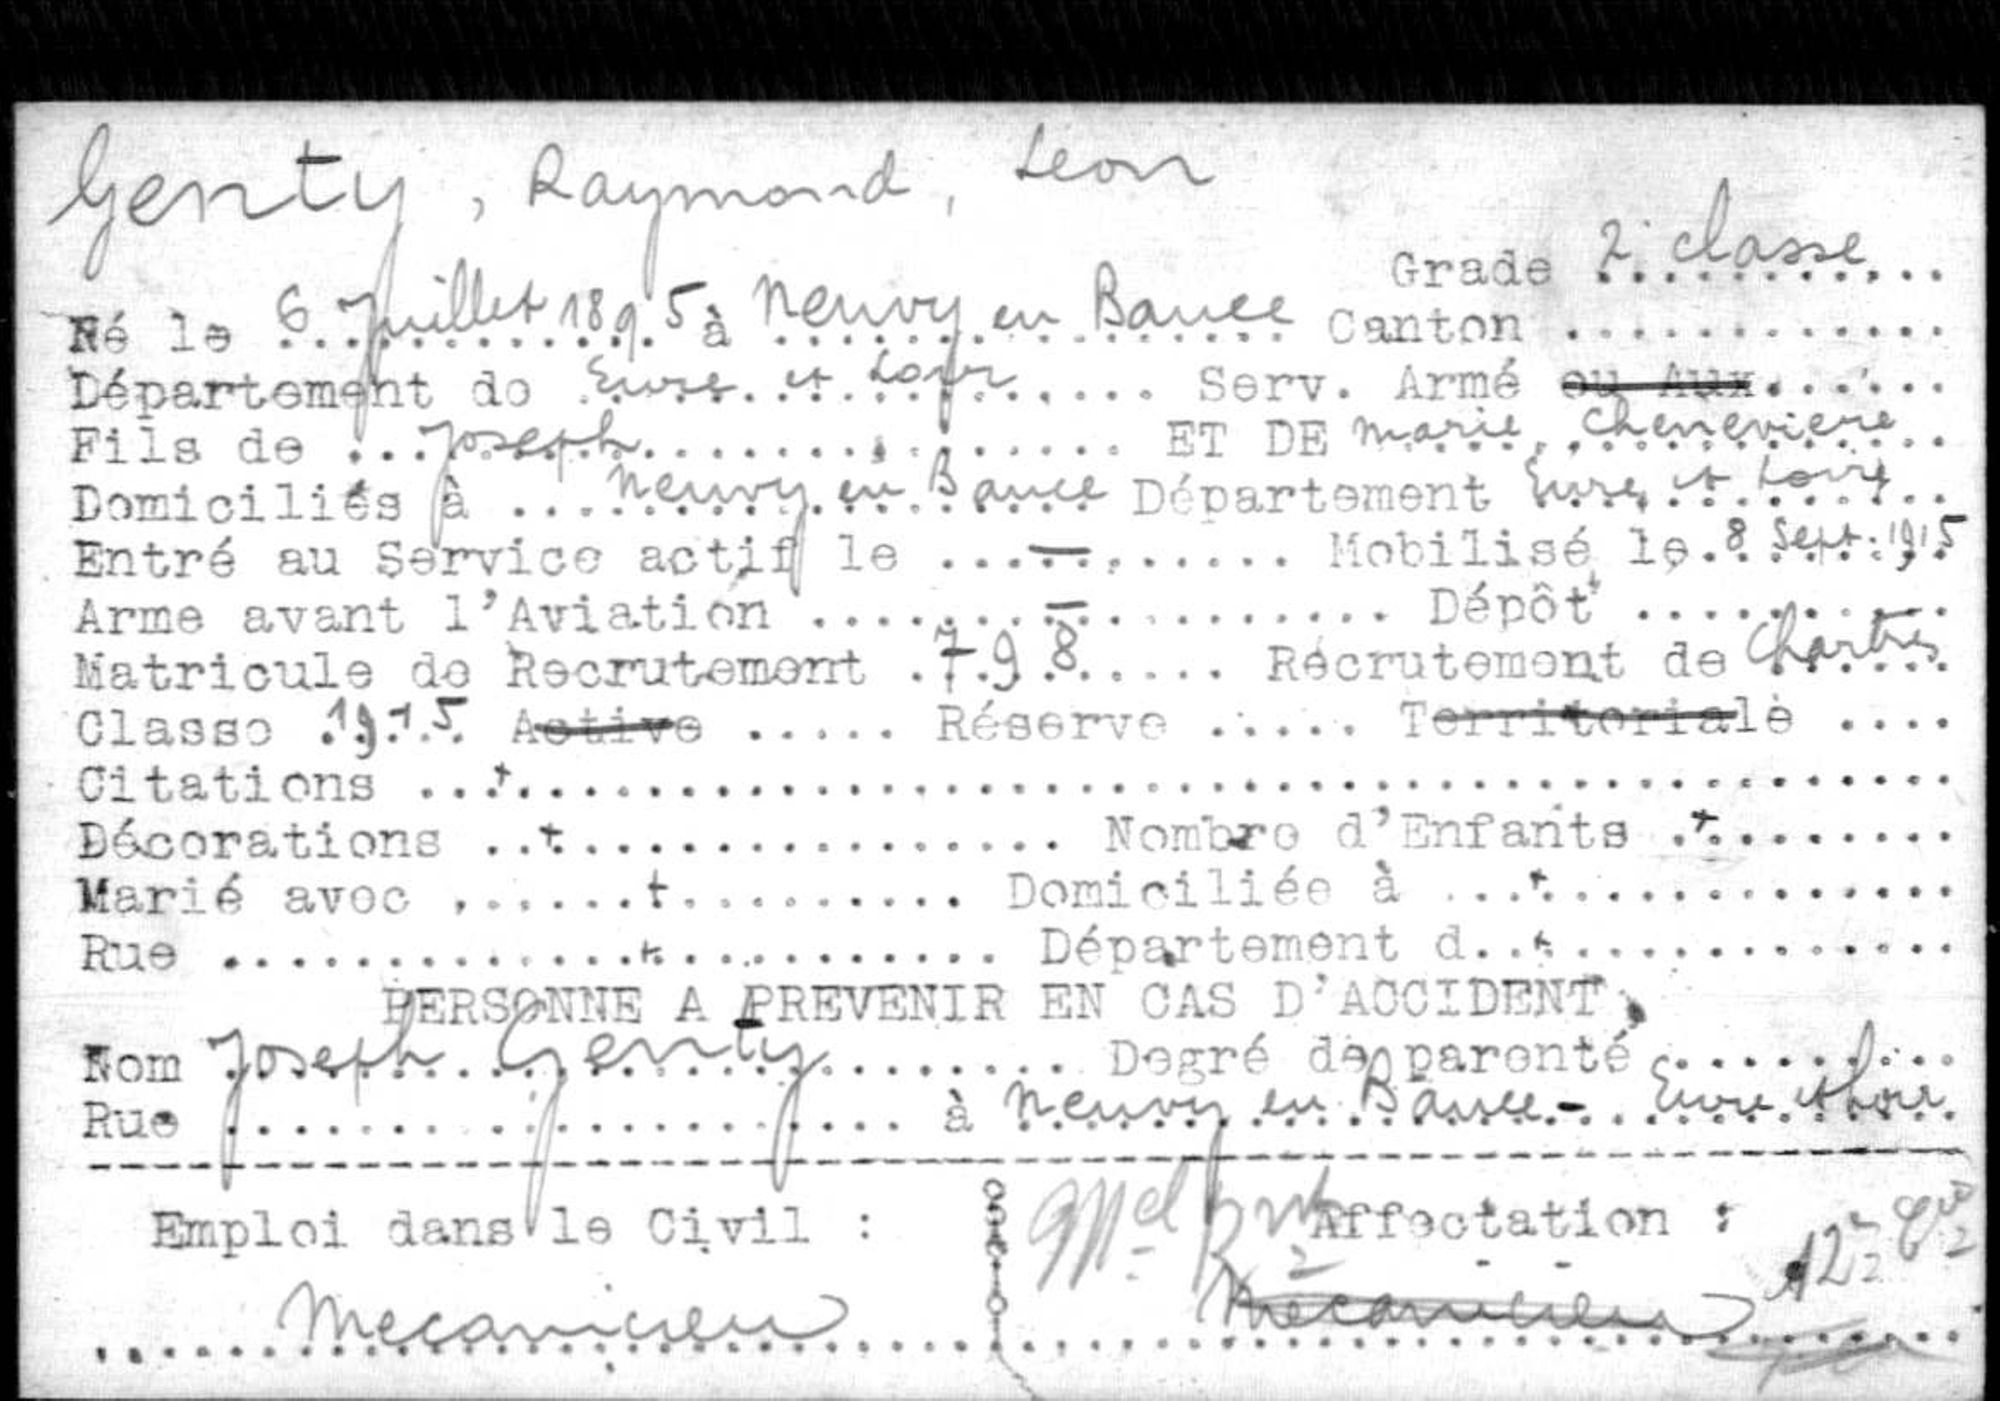 Genty, Raymond, Léon
Grade 2e classe
Né le 6 Juillet 1895 à Neuvy en Bauce Canton ............
Département de Eure et Loir Serv. Armé ou Aux.
Fils de ... Joseph ET DE Marie, Cheneviere
Domiciliés à ... Neuvy en Bauce Département Eure et Loire
Entré au Service actif le ...—... Mobilisé le 8 Sept. 1915
Arme avant l'Aviation ...—... Dépôt ...—...
Matricule de Recrutement 798 Recrutement de Chartres
Classe 1915 Active ..... Réserve ..... Territoriale ....
Citations ...+...
Décorations ..+... Nombre d'Enfants .+...
Marié avec ...+... Domiciliée à ...+...
Rue ...+... Département d...+...
PERSONNE A PREVENIR EN CAS D'ACCIDENT
Nom Joseph Genty Degré de parenté ..........
Rue .................... à Neuvy en Bauce - Eure et Loir
Emploi dans le Civil : Affectation :
Mecanicien Mecanicien